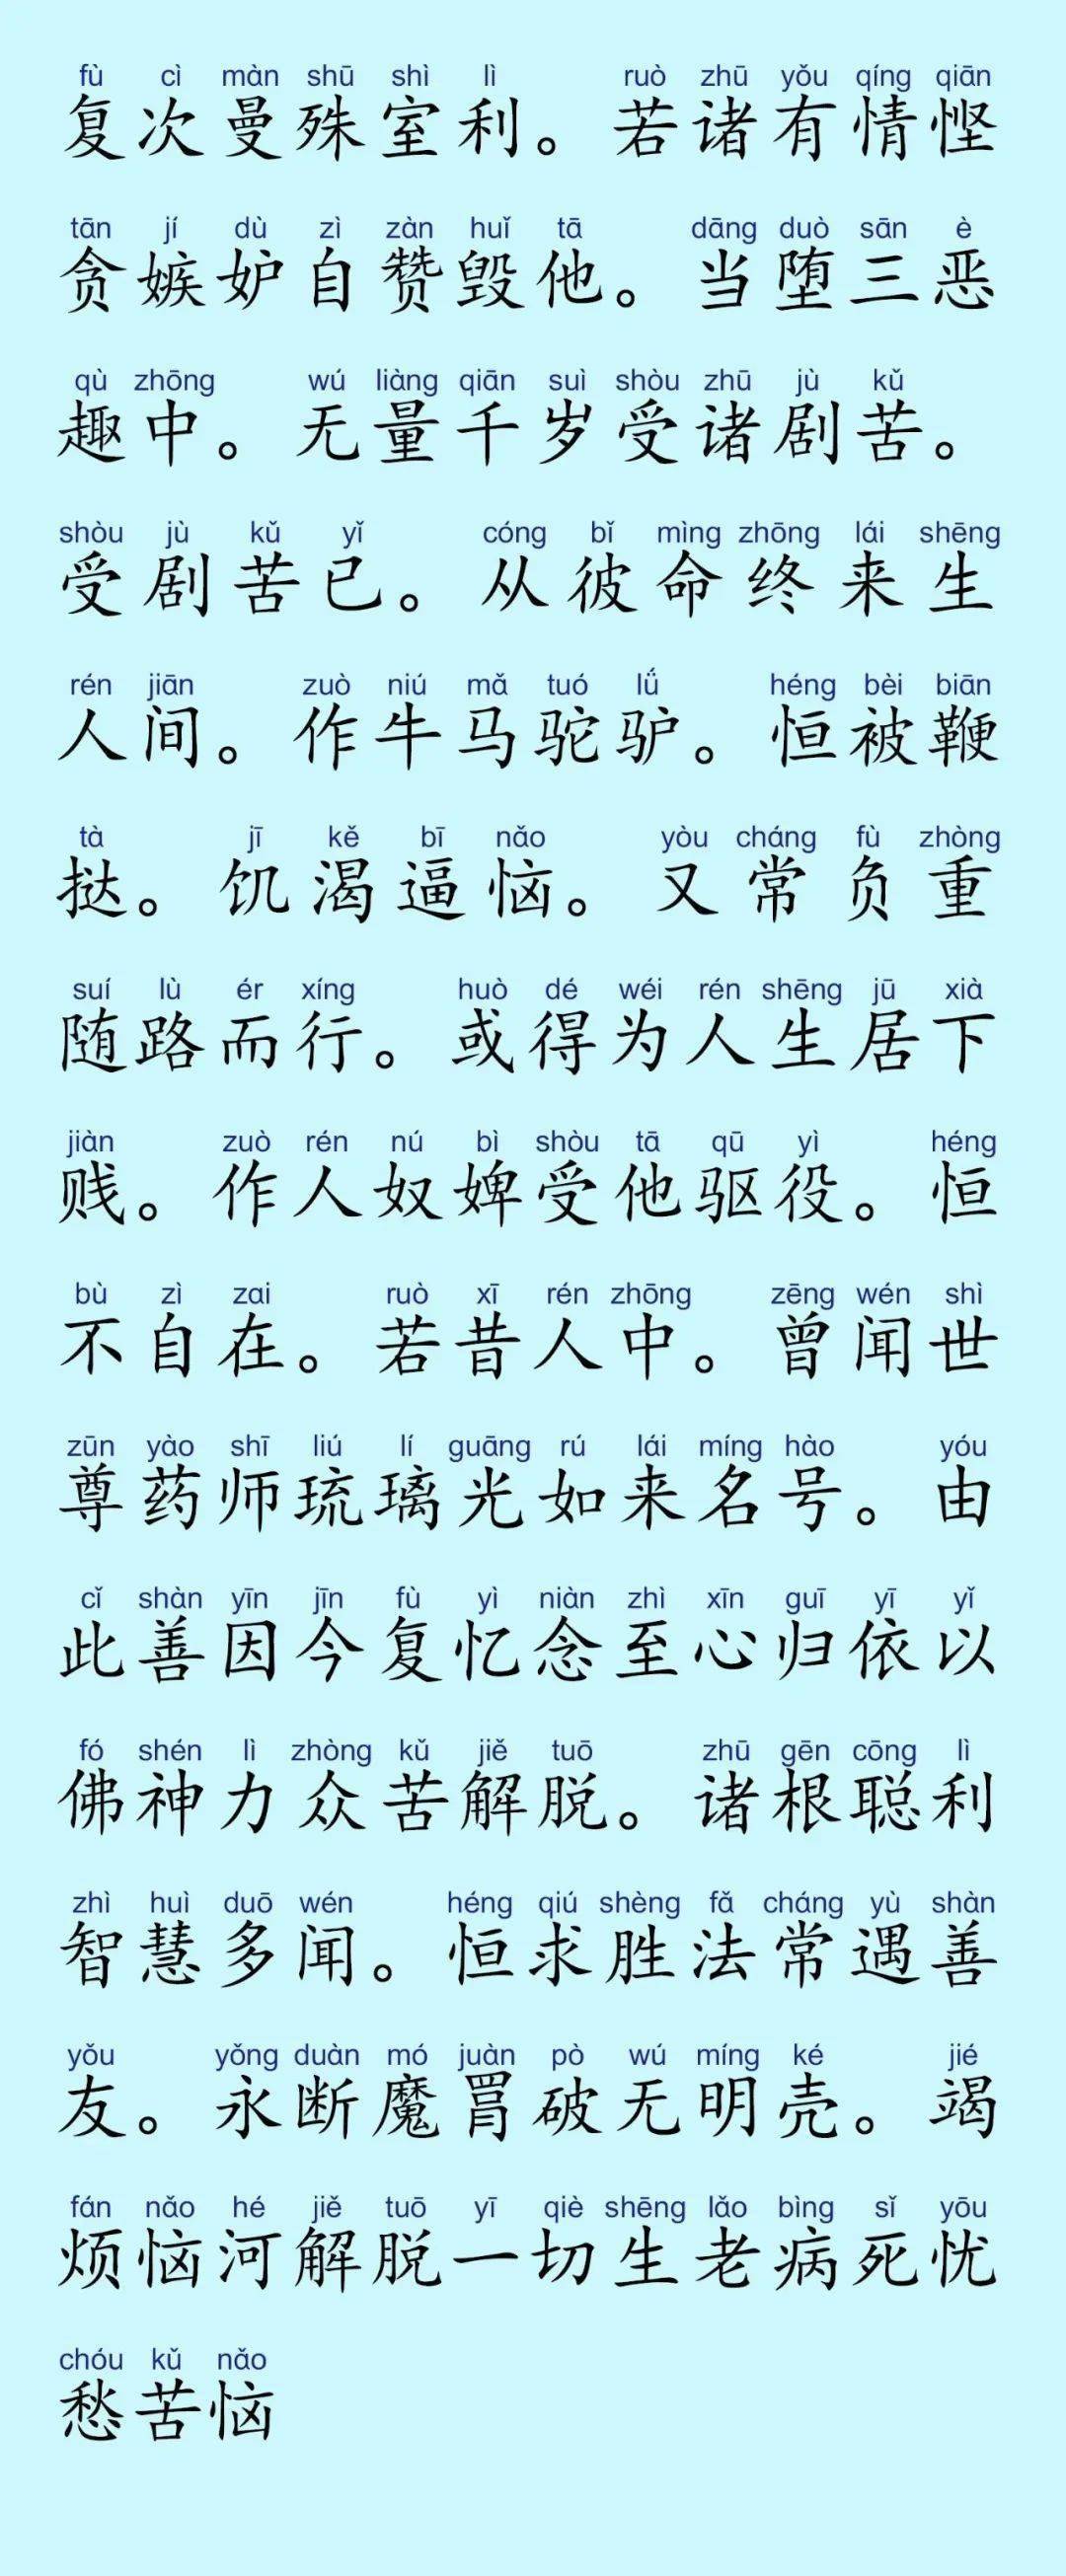 fù cì màn shū shì lì ruò zhū yǒu qíng qiān
复次曼殊室利。若诸有情悭
tān jí dù zì zàn huǐ tā dāng duò sān è
贪嫉妒自赞毁他。当堕三恶
qù zhōng wú liàng qiān suì shòu zhū jù kǔ
趣中。无量千岁受诸剧苦。
shòu jù kǔ yǐ cóng bǐ mìng zhōng lái shēng
受剧苦已。从彼命终来生
rén jiān zuò niú mǎ tuó lǘ héng bèi biān
人间。作牛马驼驴。恒被鞭
tà jī kě bī nǎo yòu cháng fù zhòng
挞。饥渴逼恼。又常负重
suí lù ér xíng huò dé wéi rén shēng jū xià
随路而行。或得为人生居下
jiàn zuò rén nú bì shòu tā qū yì héng
贱。作人奴婢受他驱役。恒
bù zì zai ruò xī rén zhōng zēng wén shì
不自在。若昔人中。曾闻世
zūn yào shī liú lí guāng rú lái míng hào yóu
尊药师琉璃光如来名号。由
cǐ shàn yīn jīn fù yì niàn zhì xīn guī yī yǐ
此善因今复忆念至心归依以
fó shén lì zhòng kǔ jiě tuō zhū gēn cōng lì
佛神力众苦解脱。诸根聪利
zhì huì duō wén héng qiú shèng fǎ cháng yù shàn
智慧多闻。恒求胜法常遇善
yǒu yǒng duàn mó juàn pò wú míng ké jié
友。永断魔罥破无明壳。竭
fán nǎo hé jiě tuō yī qiè shēng lǎo bìng sǐ yōu
烦恼河解脱一切生老病死忧
chóu kǔ nǎo
愁苦恼